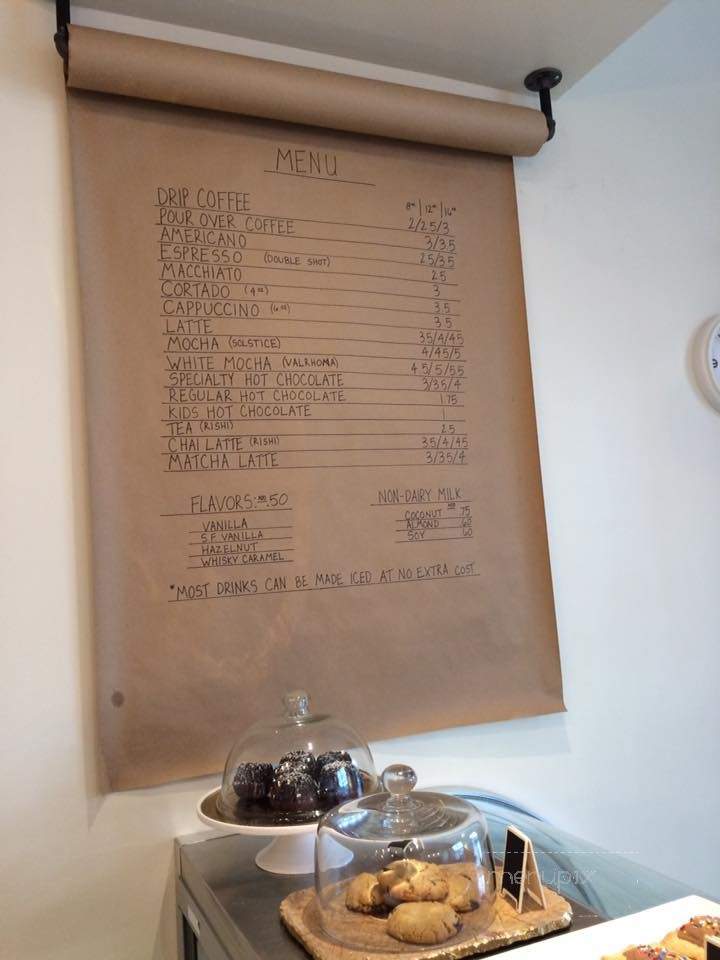 MENU
8oz | 12oz | 16oz
DRIP COFFEE 2/2.5/3
POUR OVER COFFEE 3/3.5
AMERICANO 2.5/3.5
ESPRESSO (DOUBLE SHOT) 2.5
MACCHIATO 3
CORTADO (4oz) 3.5
CAPPUCCINO (6oz) 3.5
LATTE 3.5/4/4.5
MOCHA (SOLSTICE) 4/4.5/5
WHITE MOCHA (VALRHOMA) 4.5/5/5.5
SPECIALTY HOT CHOCOLATE 3/3.5/4
REGULAR HOT CHOCOLATE 1.75
KIDS HOT CHOCOLATE 1
TEA (RISHI) 2.5
CHAI LATTE (RISHI) 3.5/4/4.5
MATCHA LATTE 3/3.5/4
FLAVORS: ADD .50
VANILLA
S.F. VANILLA
HAZELNUT
WHISKY CARAMEL
NON-DAIRY MILK
ADD
COCONUT .75
ALMOND .60
SOY .60
*MOST DRINKS CAN BE MADE ICED AT NO EXTRA COST
menupix